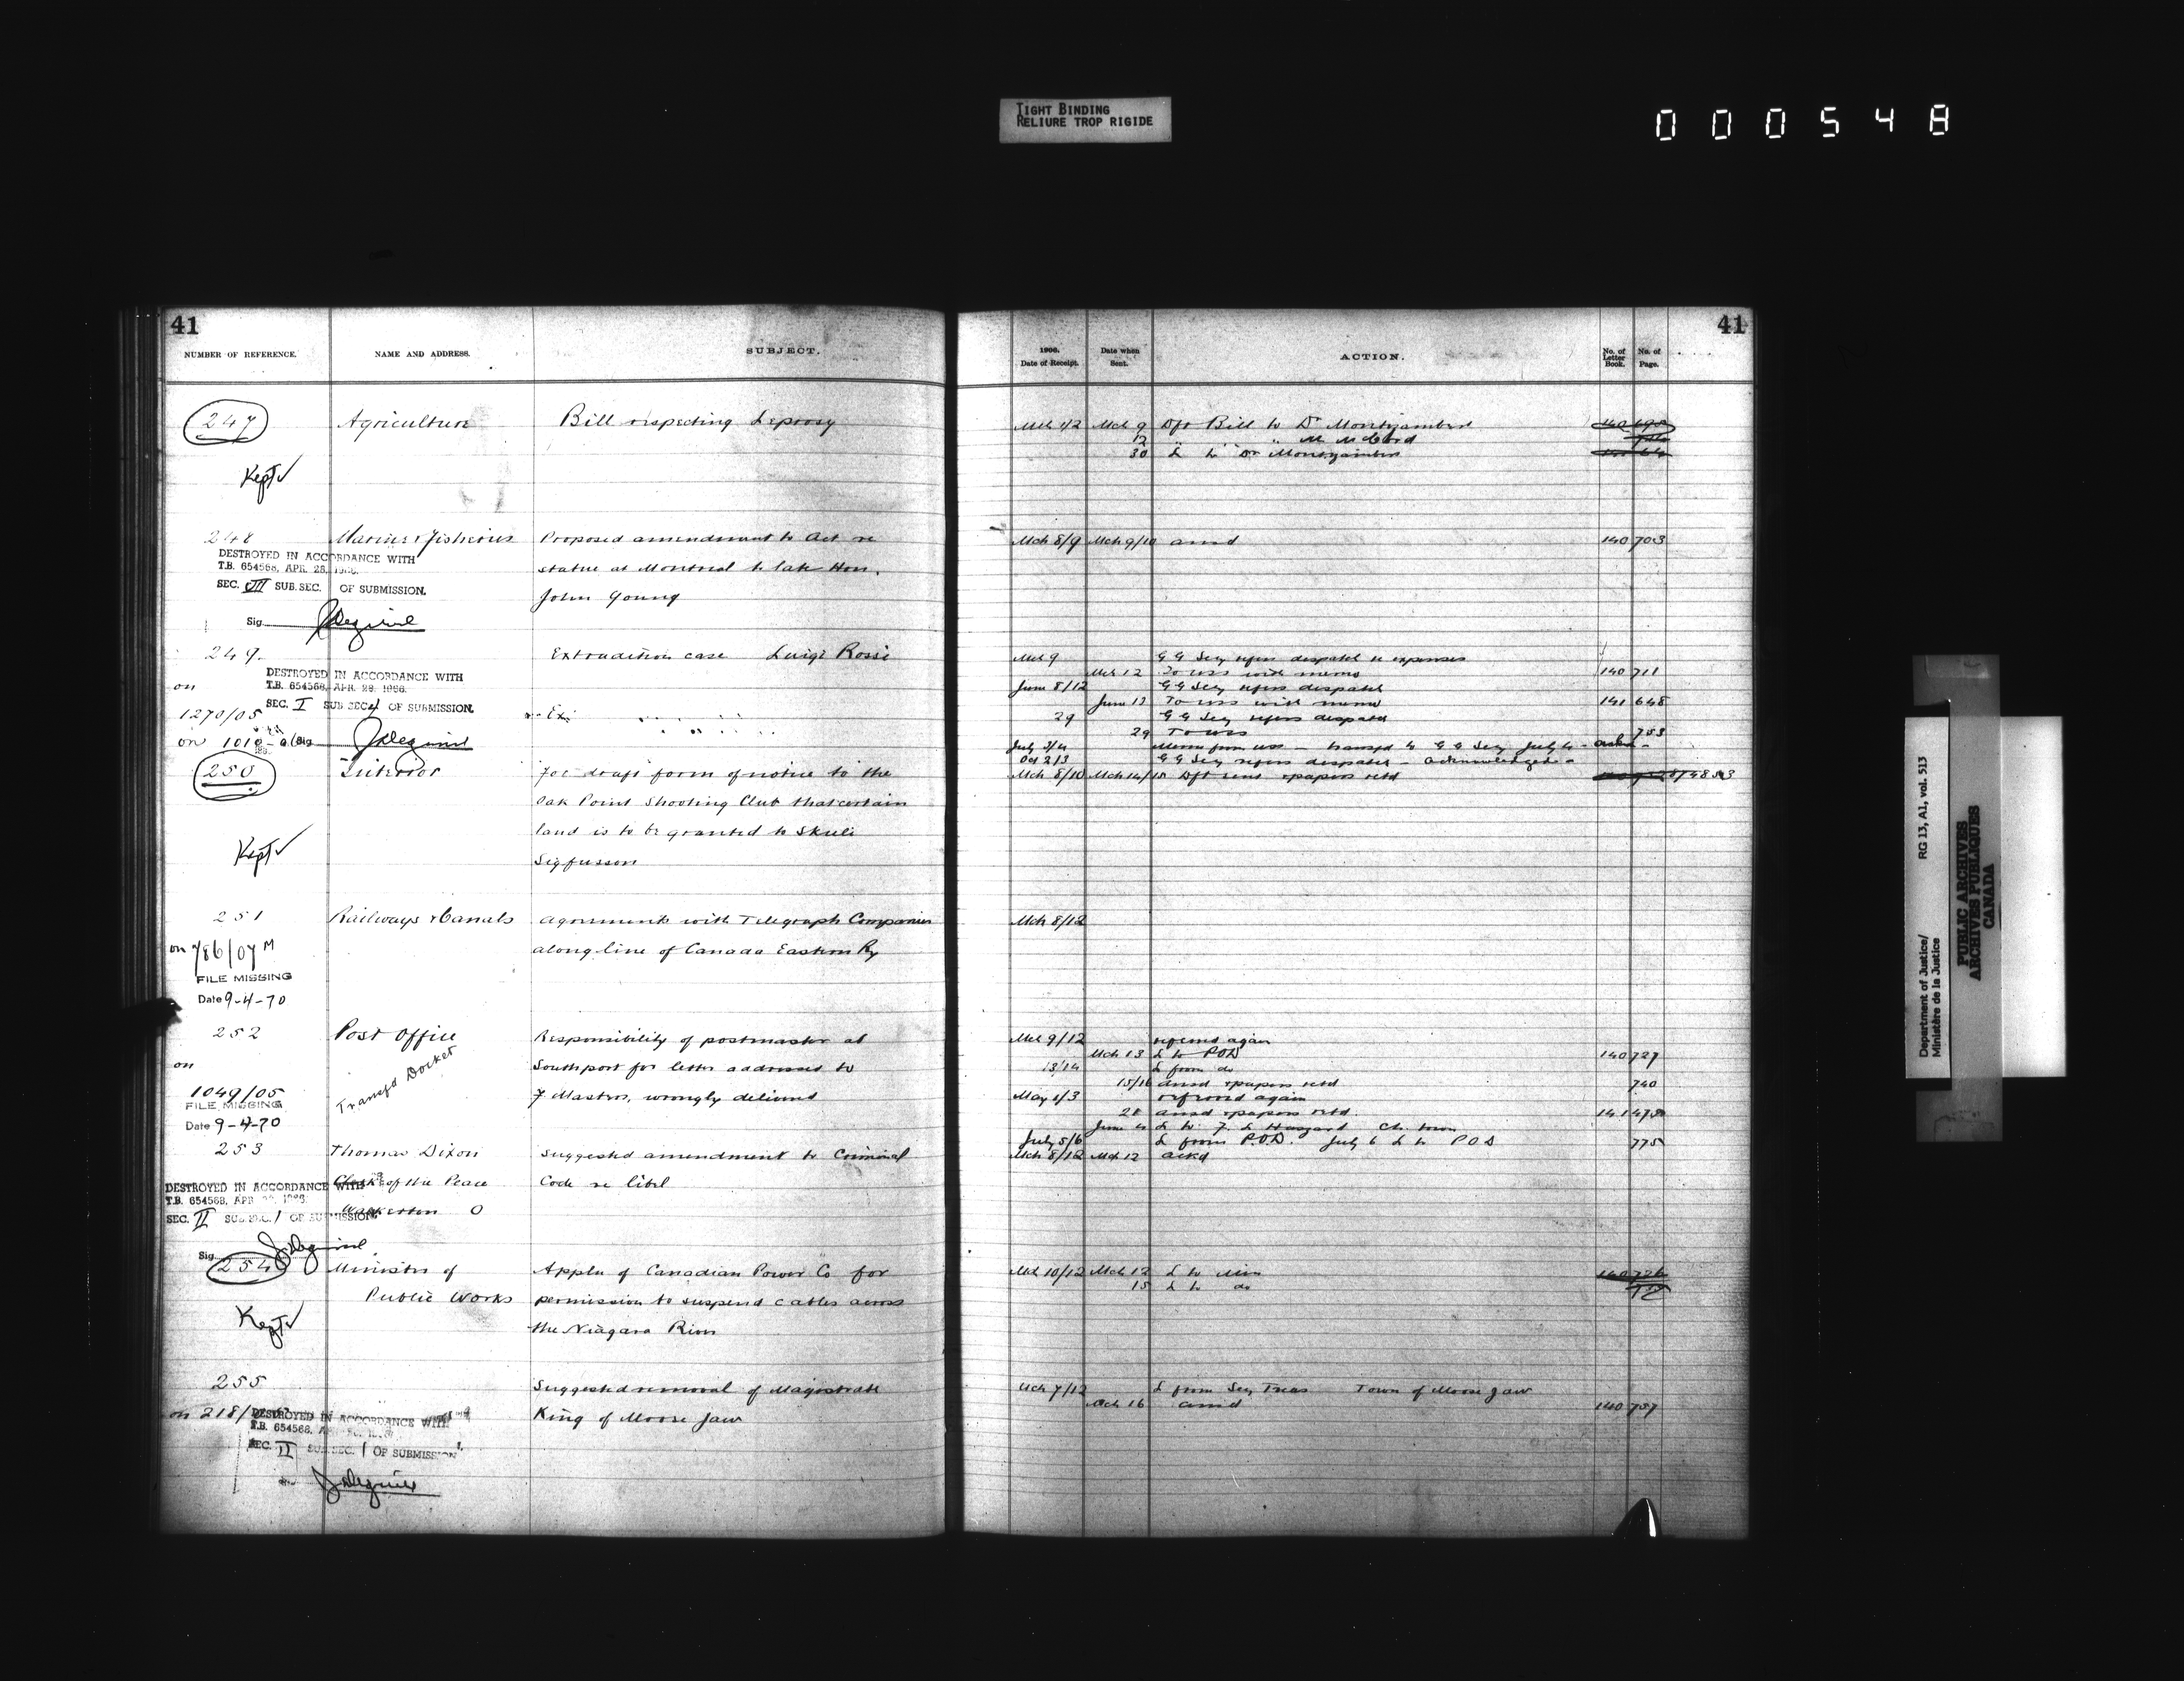 TIGHT BINDING
RELIURE TROP RIGIDE
000548
41
NUMBER OF REFERENCE. NAME AND ADDRESS. SUBJECT.
247 Agriculture Bill respecting Leprosy
Kept
248 Marine & Fisheries Proposed amendment to Act re
DESTROYED IN ACCORDANCE WITH
T.B. 654568, APR. 28, 1966.
statue at Montreal to late Hon.
SEC. III SUB.SEC. OF SUBMISSION.
John Young
Sig.
249. Extradition case Luigi Rossi
DESTROYED IN ACCORDANCE WITH
on T.B. 654568, APR. 28, 1966.
SEC. I SUB SEC. OF SUBMISSION.
1270/05
on 1010 Sig.
250 Interior For draft form of notice to the
Oak Point Shooting Club that certain
land is to be granted to Skuli
Kept
Sigfusson
251 Railways & Canals Agreements with Telegraph Companies
on 786/07 M along line of Canada Eastern Ry
FILE MISSING
Date 9-4-70
252 Post Office Responsibility of postmaster at
on Transfd Docket Southport for letter addressed to
1049/05 F Masters, wrongly delivered
FILE MISSING
Date 9-4-70
253 Thomas Dixon Suggested amendment to Criminal
Clerk of the Peace Code re libel
DESTROYED IN ACCORDANCE WITH
T.B. 654568, APR
Walkerton O
SEC. II SUB.SEC. 1 OF SUBMISSION.
Sig.
254 Minister of Appln of Canadian Power Co for
Public Works permission to suspend cables across
Kept
the Niagara River
255 Suggested removal of Magistrate
on 218/ King of Moose Jaw
DESTROYED IN ACCORDANCE WITH
T.B. 654568,
SEC. II SUB.SEC. 1 OF SUBMISSION
41
1906.
Date of Receipt. Date when
Sent. ACTION. No. of
Letter
Book. No. of
Page.
Mch 9 Dft Bill to Dr Montizambert
12
30 L to Dr Montizambert
Mch 8/9 Mch 9/10 ansd 140 703
Mch 9 G G Secy refers despatch re expenses
Mch 12 To USS with memo 140 711
June 8/12 G G Secy refers despatch
June 13 To USS with memo 141 648
29 G G Secy refers despatch
29 To USS 753
July 3/4 Memo from USS - transfd to G G Secy July 4
Oct 2/3 G G Secy refers despatch - acknowledged
Mch 8/10 Mch 14/15 Dft sent & papers retd
Mch 8/12
Mch 9/12 referred again
Mch 13 L to POD 140 727
13/14 L from do
15/16 ansd & papers retd 740
May 1/3 referred again
28 ansd & papers retd 141 475
June 4 L to F L Haszard Ch. town
July 5/6 L from P.O.D. July 6 L to P O D 775
Mch 8/12 Mch 12 ackd
Mch 10/12 Mch 12 L to Min 140 726
15 L to do
Mch 7/12 L from Secy Treas Town of Moose Jaw
Mch 16 ansd 140 757
Department of Justice/ RG 13, A1, vol. 513
Ministère de la Justice
PUBLIC ARCHIVES
ARCHIVES PUBLIQUES
CANADA